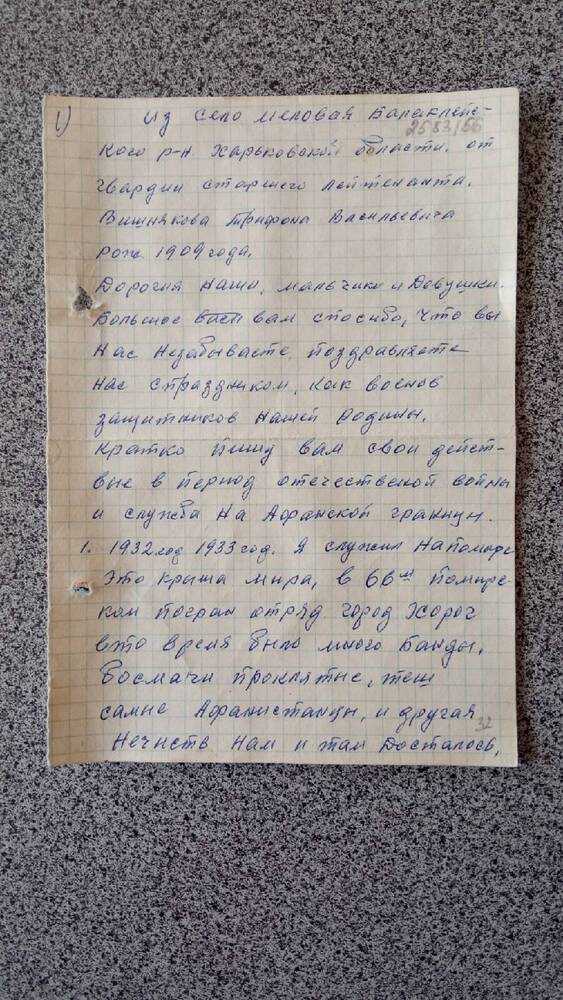 1) Из село Меловая Балаклейс-
2583/56
кого р-н Харьковской области. от
гвардии старшего лейтенанта.
Вишнякова Трифона Васильевича
рож 1909 года.
Дорогий наши, мальчики и Девушки.
Большое вам спосибо, что вы
нас незабываете, поздравляете
нас спраздником, как воснов
защитников нашей Родины.
Кратко пишу вам свои дейст-
вие в период отечественой войны
и служба на Афганской границы.
1. 1932 год 1933 год. Я служил Напомире
Это крыша мира, в 66ш помирс-
ком погран отряд город Хорог
вто время было много Банды.
Босмачи проклятые, теш
самие Афганистанцы, и другая
32
Нечиств нам и там досталось,